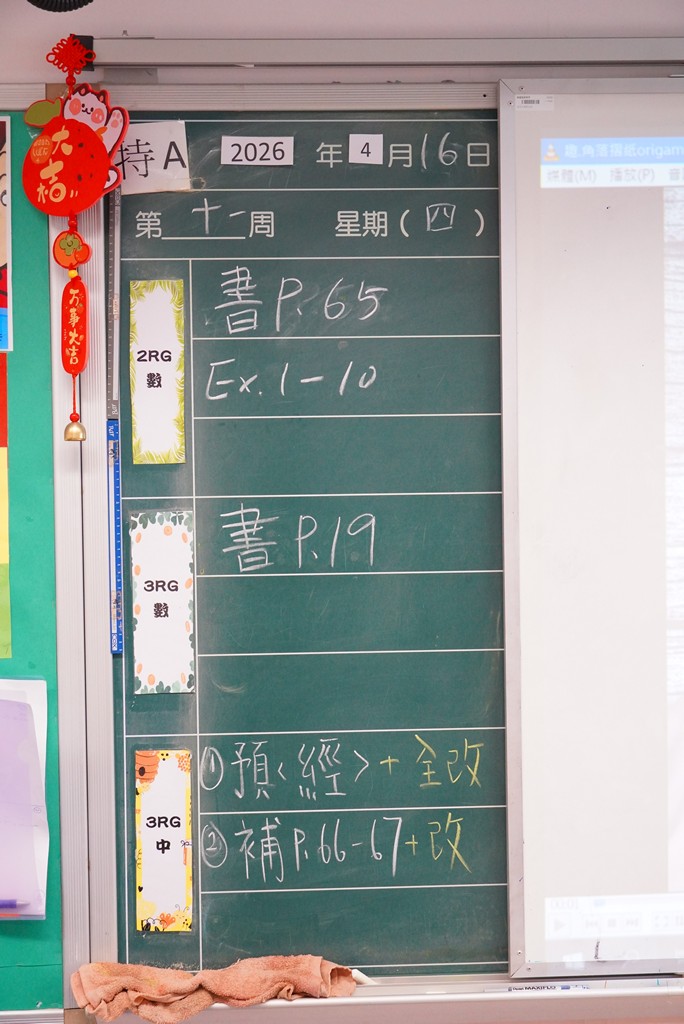 大吉
万事大吉
特A
2026 年 4 月 16 日
第 十一 周 星期 ( 四 )
2RG
數
書 P. 65
Ex. 1 - 10
3RG
數
書 P. 19
3RG
中
① 預〈經〉+ 全改
② 補 P. 66 - 67 + 改
摺紙origam
媒體(M) 播放(P)